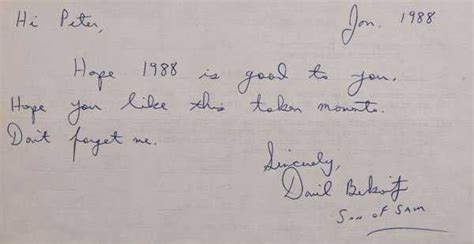 Hi Peter,
Jan. 1988
Hope 1988 is good to you.
Hope you like this token
Don't forget me.
Sincerely,
David Berkowitz
Son of Sam